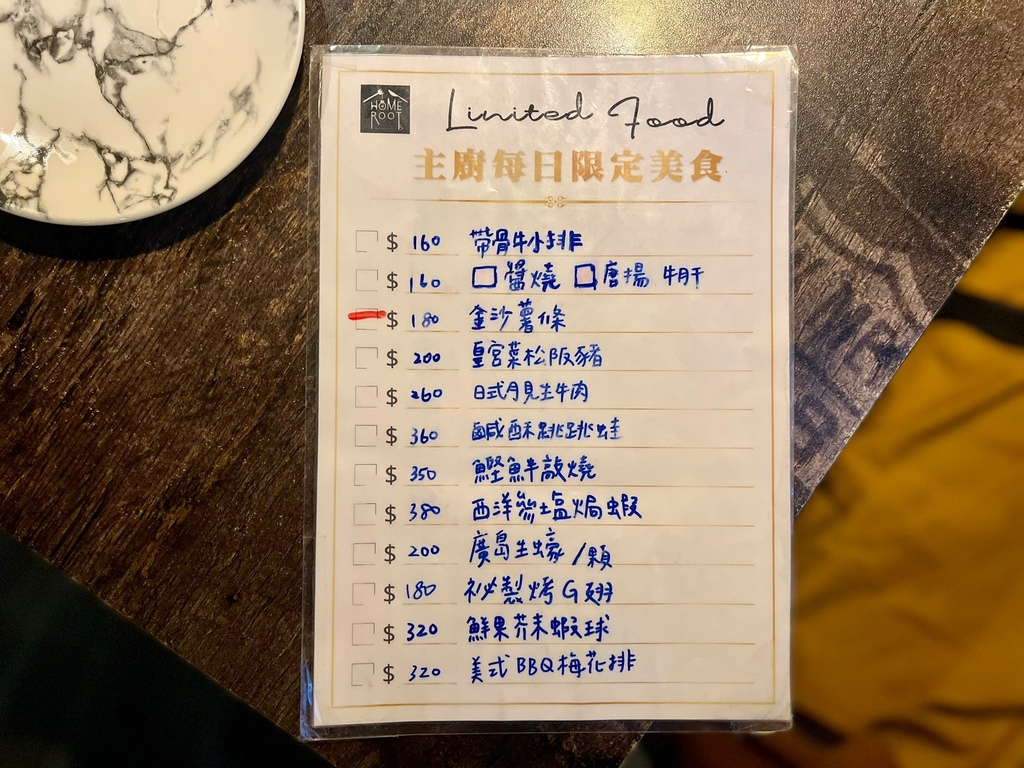 HOME
ROOT
Limited Food
主廚每日限定美食
$ 160 帶骨牛小排
$ 160 醬燒 唐揚 牛肝
$ 180 金沙薯條
$ 200 皇宮菜松阪豬
$ 260 日式月見生牛肉
$ 360 鹹酥跳跳蛙
$ 350 鰹魚半敲燒
$ 380 西洋參塩焗蝦
$ 200 廣島生蠔/顆
$ 180 祕製烤G翅
$ 320 鮮果芥末蝦球
$ 320 美式BBQ梅花排